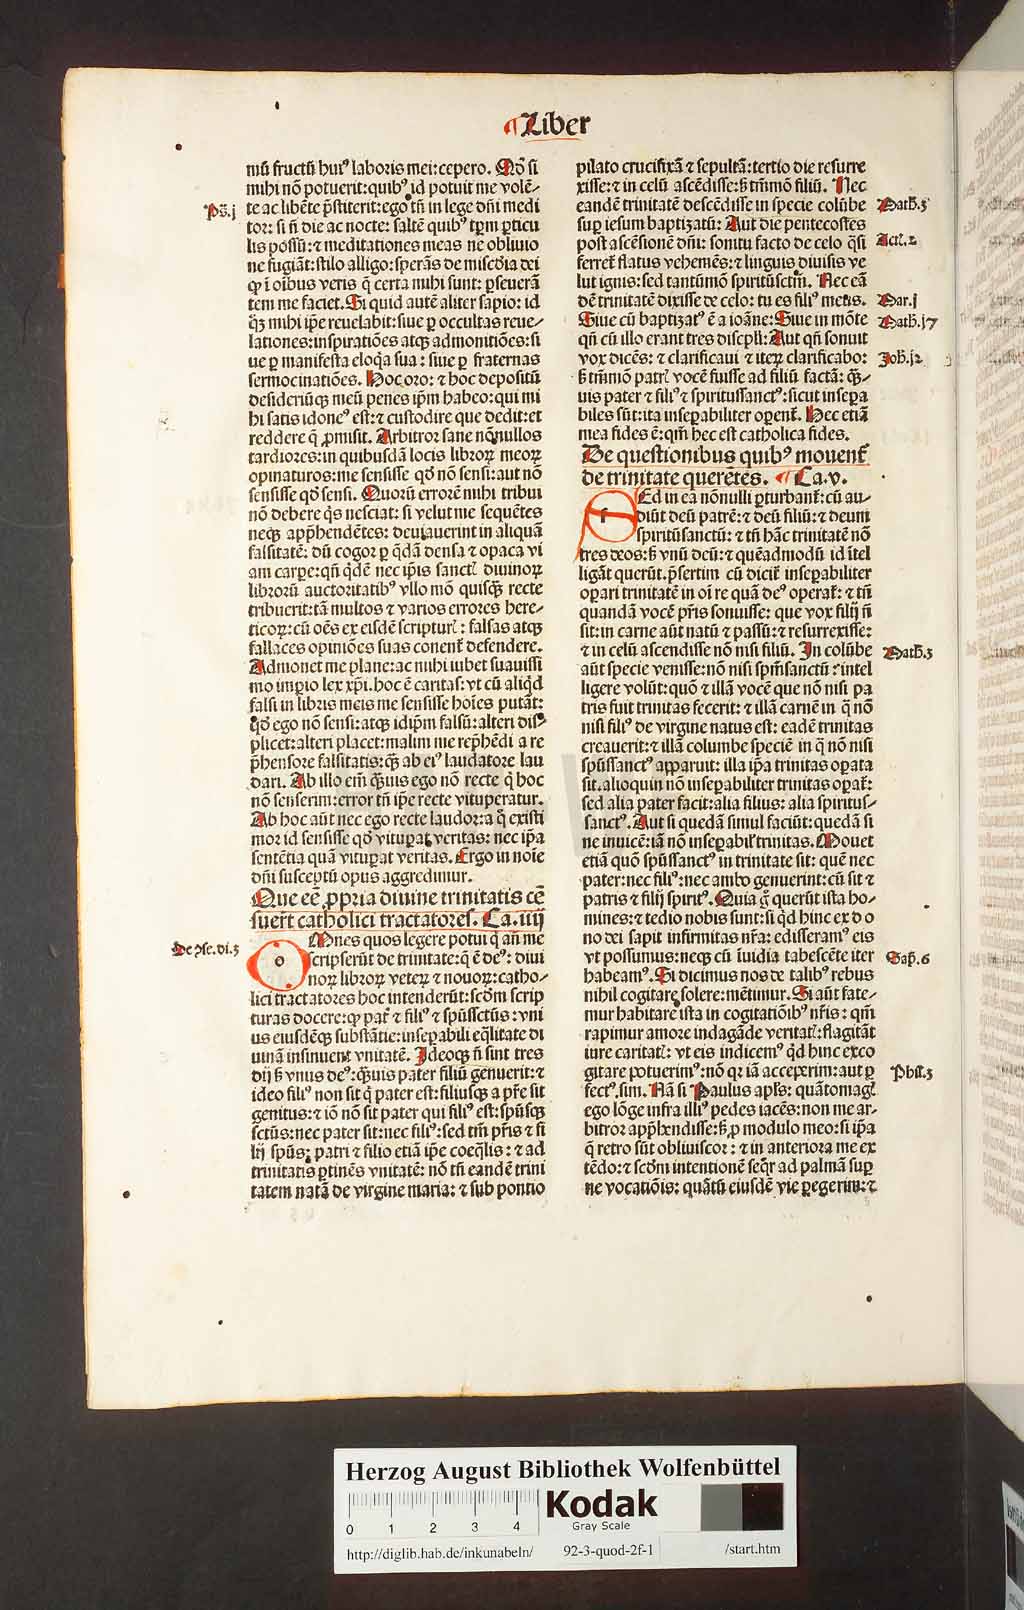 ¶ Liber
mū fructū huiꝰ laboris mei: cepero. Qđ si
mihi nō potuerit: quibꝰ id potuit me volē-
Pš. j
te ac libēte p̄stiterit: ego tn̄ in lege dn̄i medi
tor: si n̄ die ac nocte: saltē quibꝰ tꝑm ꝑticu
lis possū: ⁊ meditationes meas ne obliuio
ne fugiāt: stilo alligo: sperās de misc̄dia dei
ꝙ ī oībus veris q̄ certa mihi sunt: ꝑseuerā
tem me faciet. Si quid autē aliter sapio: id
qꝫ mihi ip̄e reuelabit: siue ꝑ occultas reue-
lationes: inspiratiōes atqꝫ admonitiōes: si
ue ꝑ manifesta eloq̄a sua: siue ꝑ fraternas
sermocinatiōes. Hoc oro: ⁊ hoc depositū
desideriūqꝫ meū penes ip̄m habeo: qui mi
hi satis idoneꝰ est: ⁊ custodire que dedit: et
reddere q̄ ꝓmisit. Arbitror sane nōnullos
tardiores: in quibusdā locis libroꝝ meoꝝ
opinaturos: me sensisse qđ nō sensi: aut nō
sensisse qđ sensi. Quorū errorē mihi tribui
nō debere q̄s nesciat: si velut me seq̄uētes
neqꝫ app̄hendētes: deuiauerint in aliquā
falsitatē: dū cogor ꝑ q̄dā densa ⁊ opaca vi
am carpe: qn̄ q̄dē nec ip̄is sanctꝭ diuinoꝝ
librorū auctoritatibꝰ vllo mō quisqꝫ recte
tribuerit: tā multos ⁊ varios errores here-
ticoꝝ: cū oēs ex eisdē scripturꝭ: falsas atqꝫ
fallaces opiniōes suas conent᷑ defendere.
Admonet me plane: ac mihi iubet suauissi
mo imꝑio lex xp̄i. hoc ē caritas: vt cū aliq̄d
falsi in libris meis me sensisse hoīes putāt:
qđ ego nō sensi: atqꝫ idip̄m falsū: alteri dis
plicet: alteri placet: malim me rep̄hēdi a re
p̄hensore falsitatis: qꝫ ab eiꝰ laudatore lau
dari. Ab illo eīm qꝫuis ego nō recte q̄ hoc
nō senserim: error tn̄ ip̄e recte vituperatur.
Ab hoc aūt nec ego recte laudor: a q̄ existi
mor id sensisse qđ vituꝑat veritas: nec ip̄a
sentētia quā vituꝑat veritas. Ergo in noīe
dn̄i susceptū opus aggredimur.
Que eē ꝓpria diuine trinitatis cē
suer̄t catholici tractatores. Ca. iiij
De ↄse. di. 3
OMnes quos legere potui q̄ an̄ me
scripserūt de trinitate: q̄ ē deꝰ: diui
noꝝ libroꝝ veteꝝ ⁊ nouoꝝ: catho-
lici tractatores hoc intenderūt: scd̄m scrip
turas docere: ꝙ pat᷑ ⁊ filiꝰ ⁊ sp̄ussctūs: vni
us eiusdēqꝫ substātie: inseꝑabili eq̄litate di
uinā insinuent vnitatē. Ideoqꝫ n̄ sint tres
dij sꝫ vnus deꝰ: qꝫuis pater filiū genuerit: ⁊
ideo filiꝰ non sit q̄ pater est: filiusqꝫ a pr̄e sit
genitus: ⁊ iō nō sit pater qui filiꝰ est: sp̄usqꝫ
sctūs: nec pater sit: nec filiꝰ: sed tm̄ pr̄is ⁊ fi
lij sp̄us: patri ⁊ filio etiā ip̄e coeq̄lis: ⁊ ad
trinitatis ꝑtinēs vnitatē: nō tn̄ eandē trini
tatem natā de virgine maria: ⁊ sub pontio
pilato crucifixā ⁊ sepultā: tertio die resurre
xisse: ⁊ in celū ascēdisse: sꝫ tm̄mō filiū. Nec
eandē trinitatē descēdisse in specie colūbe
Math̄. 3
suꝑ iesum baptizatū: Aut die pentecostes
post ascēsionē dn̄i: sonitu facto de celo q̄si
Act. 2
ferret᷑ flatus vehemēs: ⁊ linguis diuisis ve
lut ignis: sed tantūmō spiritūsctm̄. Nec eā
dē trinitatē dixisse de celo: tu es filiꝰ meus.
Mar. j
Siue cū baptizatꝰ ē a ioāne: Siue in mōte
Math̄. j7
qn̄ cū illo erant tres discipli: Aut qn̄ sonuit
vox dicēs: ⁊ clarificaui ⁊ iteꝝ clarificabo:
Joh̄. j2
sꝫ tm̄mō patrꝭ vocē fuisse ad filiū factā: qꝫ-
uis pater ⁊ filiꝰ ⁊ spiritussanctꝰ: sicut insepa
biles sūt: ita inseꝑabiliter operent᷑. Hec etiā
mea fides ē: qm̄ hec est catholica fides.
De questionibus quibꝰ mouent᷑
de trinitate querētes. ¶ Ca. v.
SEd in ea nōnulli ꝑturbant᷑: cū au-
diūt deū patrē: ⁊ deū filiū: ⁊ deum
spiritūsanctū: ⁊ tn̄ hāc trinitatē nō
tres deos: sꝫ vnū deū: ⁊ quēadmodū id ītel
ligāt querūt. p̄sertim cū dicit᷑ inseꝑabiliter
oꝑari trinitatē in oī re quā deꝰ operat᷑: ⁊ tn̄
quandā vocē pr̄is sonuisse: que vox filij n̄
sit: in carne aūt natū ⁊ passū: ⁊ resurrexisse:
⁊ in celū ascendisse nō nisi filiū. In colūbe
Math̄. 3
aūt specie venisse: nō nisi sp̄msanctū: intel
ligere volūt: quō ⁊ illā vocē que nō nisi pa
tris fuit trinitas fecerit: ⁊ illā carnē in q̄ nō
nisi filiꝰ de virgine natus est: eadē trinitas
creauerit: ⁊ illā columbe speciē in q̄ nō nisi
sp̄ussanctꝰ apparuit: illa ip̄a trinitas oꝑata
sit. alioquin nō inseꝑabiliter trinitas oꝑat᷑:
sed alia pater facit: alia filius: alia spiritus-
sanctꝰ. Aut si quedā simul faciūt: quedā si
ne inuicē: iā nō inseꝑabilꝭ trinitas. Mouet
etiā quō sp̄ussanctꝰ in trinitate sit: quē nec
pater: nec filiꝰ: nec ambo genuerint: cū sit ⁊
patris ⁊ filij spiritꝰ. Quia gͦ querūt ista ho-
mines: ⁊ tedio nobis sunt: si q̄d hinc ex do
no dei sapit infirmitas nr̄a: edisseramꝰ eis
vt possumus: neqꝫ cū īuidia tabescēte iter
Sap̄. 6
habeamꝰ. Si dicimus nos de talibꝰ rebus
nihil cogitare solere: mētimur. Si aūt fate-
mur habitare ista in cogitatiōibꝰ nr̄is: qm̄
rapimur amore indagāde veritatꝭ: flagitāt
iure caritatꝭ: vt eis indicemꝰ q̄d hinc exco
gitare potuerimꝰ: nō qꝛ iā acceperim: aut ꝑ
Phil. 3
fectꝰ sim. Nā si Paulus apl̄s: quātomagꝭ
ego lōge infra illiꝰ pedes iacēs: non me ar-
bitror app̄hendisse: sꝫ ꝓ modulo meo: si ip̄a
q̄ retro sūt obliuiscor: ⁊ in anteriora me ex
tēdo: ⁊ scd̄m intentionē seq̄r ad palmā suꝑ
ne vocatiōis: quātū eiusdē vie ꝑegerim: ⁊
Herzog August Bibliothek Wolfenbüttel
0 1 2 3 4
Kodak
Gray Scale
http://diglib.hab.de/inkunabeln/ 92-3-quod-2f-1 /start.htm